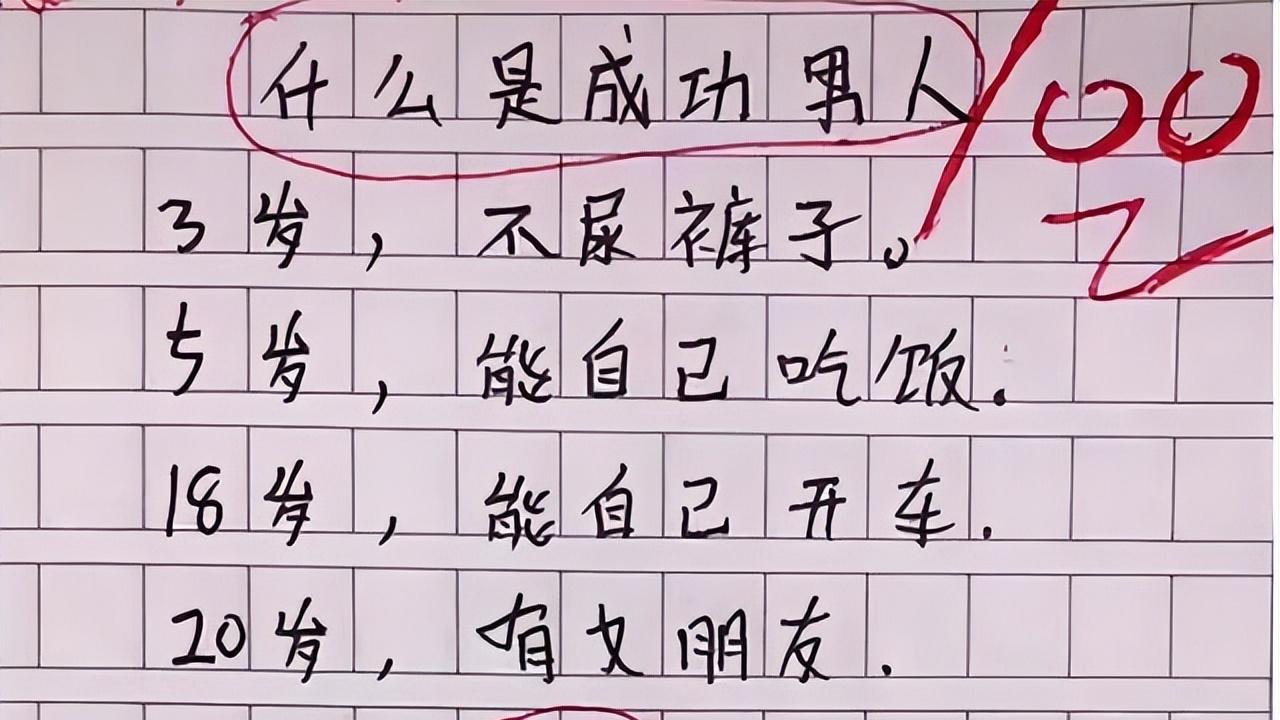 什么是成功男人
100
3岁，不尿裤子。
5岁，能自己吃饭.
18岁，能自己开车.
20岁，有女朋友.